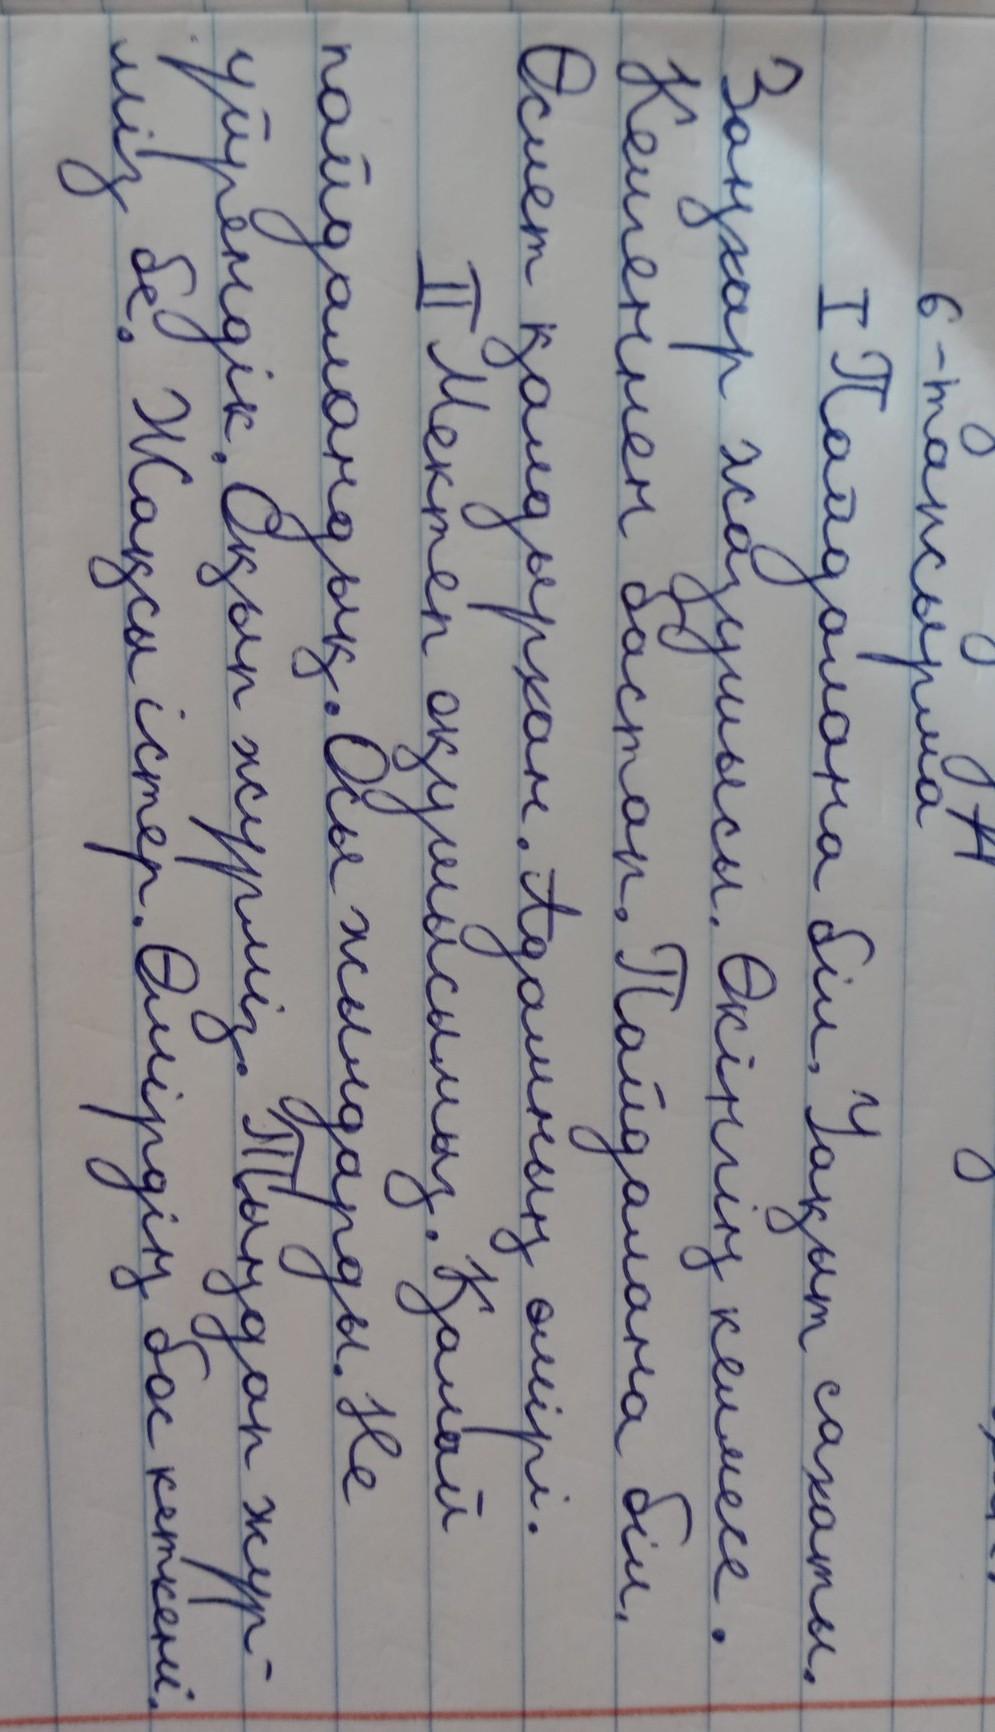 6-тапсырма
I Пайдалана біл. Уақыт сахаты.
Заңхар жазушысы. Өкінгің келмее.
Келгеннен бастап. Пайдалана біл.
Өсиет қалдырхан. Адамның өмірі.
II Мектеп оқушысымыз. Қалай
пайдаландық. Осы жылдарды. Не
үйрендік. Оқып жүрміз. Тыңдап жүр-
міз бе. Жақсы істер. Өмірдің бос кеткені.